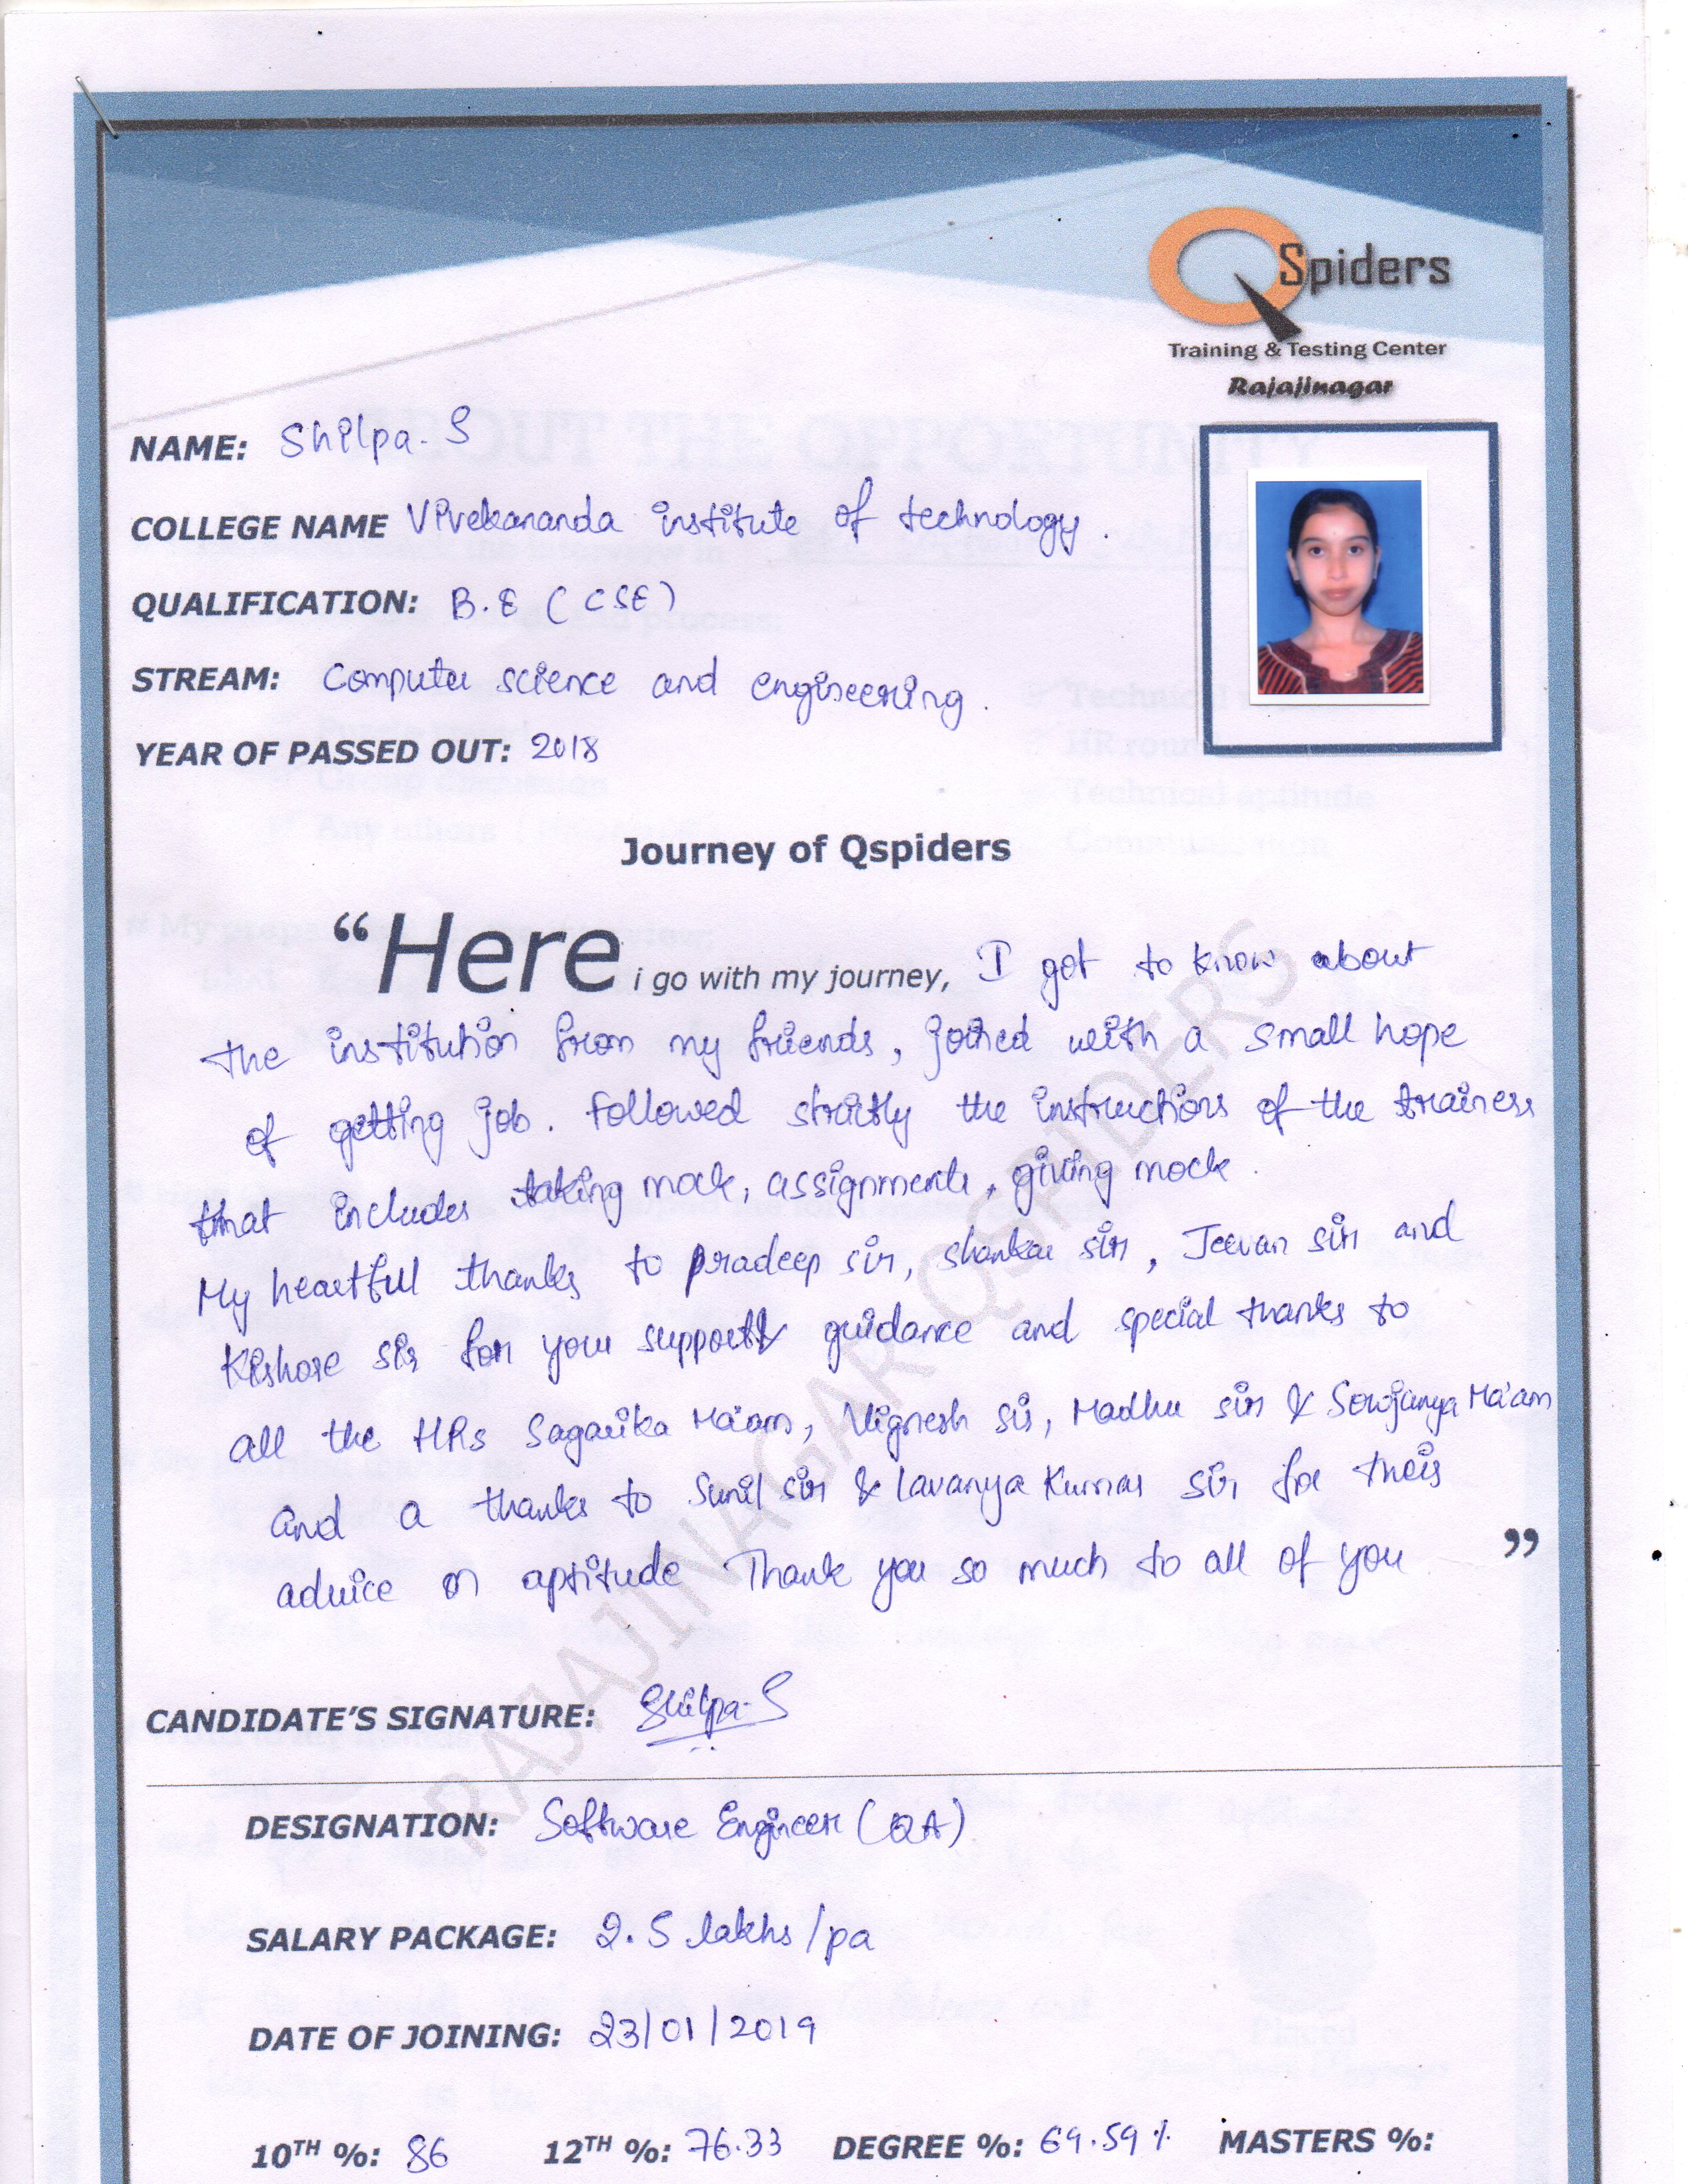 QSpiders
Training & Testing Center
Rajajinagar
NAME: Shilpa. S
COLLEGE NAME Vivekananda institute of technology.
QUALIFICATION: B.E (CSE)
STREAM: Computer science and engineering.
YEAR OF PASSED OUT: 2018
Journey of Qspiders
“Here i go with my journey, I got to know about
the institution from my friends, joined with a small hope
of getting job. Followed strictly the instructions of the trainers
that includes taking mock, assignments, giving mock.
My heartful thanks to pradeep sir, shankar sir, Jeevan sir and
Kishore sir for your support guidance and special thanks to
all the HRs Sagarika Ma'am, Vignesh sir, Madhu sir & Sowjanya Ma'am
and a thanks to Sunil sir & Lavanya Kumar sir for their
advice on aptitude Thank you so much to all of you ”
RAJAJINAGAR QSPIDERS
CANDIDATE’S SIGNATURE: Shilpa. S
DESIGNATION: Software Engineer (QA)
SALARY PACKAGE: 2.5 lakhs/pa
DATE OF JOINING: 23/01/2019
10TH %: 86 12TH %: 76.33 DEGREE %: 69.59 % MASTERS %: